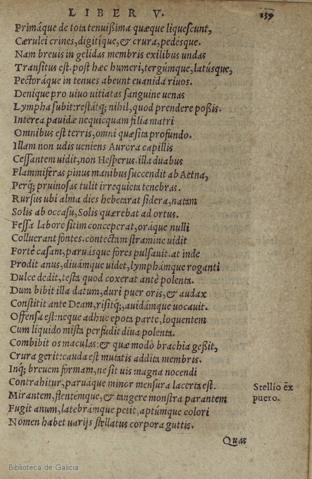 LIBER V.
159
Primáque de tota tenuißima quæque liquescunt,
Cærulei crines, digitique, & crura, pedesque.
Nam breuis in gelidas membris exilibus undas
Transitus est. post hæc humeri, tergúmque, latúsque,
Pectoráque in tenues abeunt euanida riuos.
Denique pro uiuo uitiatas sanguine uenas
Lympha subit: restátq; nihil, quod prendere poßis.
Interea pauidæ nequicquam filia matri
Omnibus est terris, omni quæsita profundo.
Illam non udis ueniens Aurora capillis
Cessantem uidit, non Hesperus. illa duabus
Flammiferas pinus manibus succendit ab Aetna,
Perq; pruinosas tulit irrequieta tenebras.
Rursus ubi alma dies hebetarat sidera, natam
Solis ab occasu, Solis quærebat ad ortus.
Fessa labore sitim conceperat, oráque nulli
Colluerant fontes. contectam stramine uidit
Fortè casam, paruásque fores pulsauit. at inde
Prodit anus, diuámque uidet, lymphámque roganti
Dulce dedit, testa quod coxerat antè polenta.
Dum bibit illa datum, duri puer oris, & audax
Constitit ante Deam, risitq;, auidámque uocauit.
Offensa est: neque adhuc epota parte, loquentem
Cum liquido mista perfudit diua polenta.
Combibit os maculas: & quæ modò brachia geßit,
Crura gerit: cauda est mutatis addita membris.
Inq; breuem formam, ne sit uis magna nocendi
Contrahitur, paruaque minor mensura lacerta est.
Stellio ex̄
puero.
Mirantem, flentemque, & tangere monstra parantem
Fugit anum, latebrámque petit, aptúmque colori
Nomen habet uarijs stellatus corpora guttis.
Quas
Biblioteca de Galicia